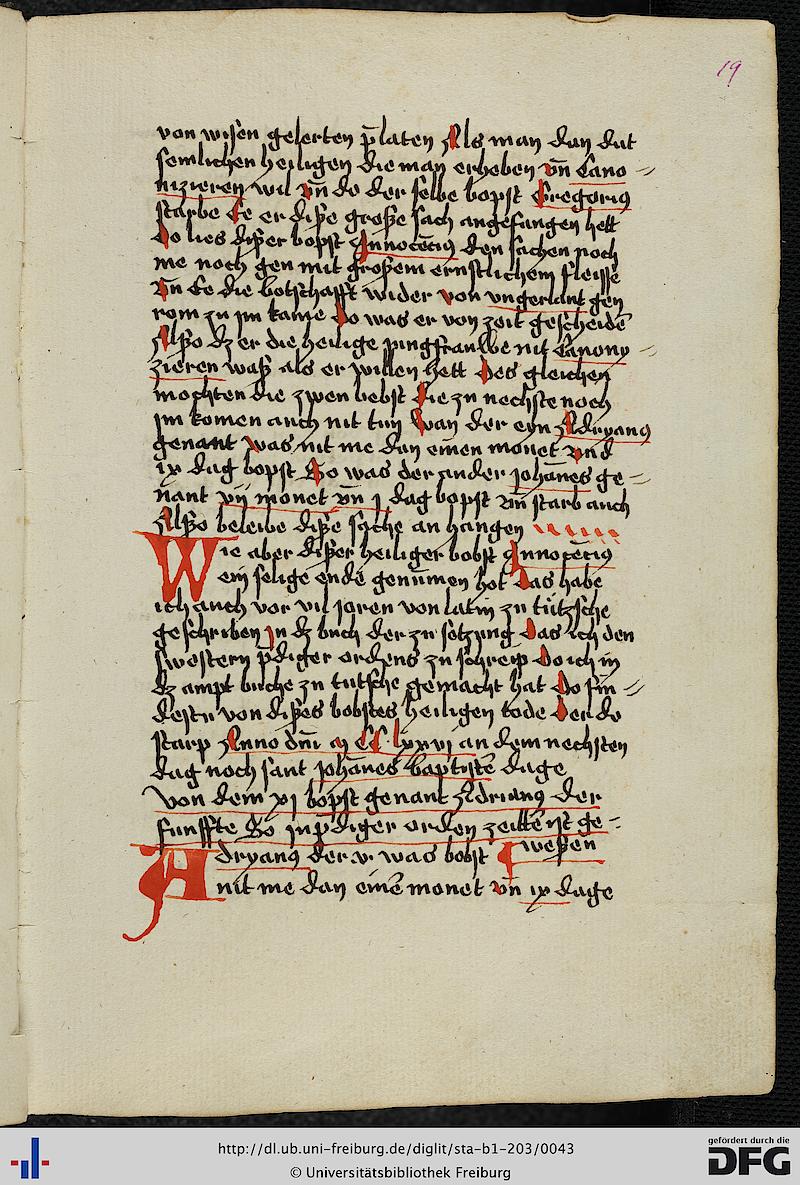 19
von wisen gelerten p̄laten Als man dan dut
semlichen heiligen die man erheben vn̄ Cano-
nizieren wil vn̄ do der selbe bopst Gregorius
starbe Ee er diße große sach angefangen hett
Do lies dißer bopst Innocēcius den sachen noch
me noch gen mit großem ernstlichem fleisse
vn̄ Ee die botschafft wider von vngerlant gen
rom zu im kame Do was er von zeit gescheidē
Alßo dz er die heilige iungfrauwe nit Canony-
zieren waß als er willen hett Des gleichen
mochten die zwen bebst Die zu nechste noch
im komen auch nit tun Wan der eyn Adryanus
genant was nit me dan einen monet vnd
ix dag bopst So was der ander Johānes ge-
nant vij monet vn̄ j dag bopst vn̄ starb auch
Alßo beleibe diße sache an hangen
Wie aber dißer heiliger bobst Innocēcius
ein selige ende genūmen hot Das habe
ich auch vor vil joren von latin zu tützsche
geschriben in dz buch der zu setzung Das ich den
swestern p̄diger ordens zu schreip Do ich in
dz ampt buche zu tutsche gemacht hat Do fin-
destu von dißes bobstes heiligen tode Der do
starp Anno dn̄i M CC lxxvj an dem nechsten
dag noch sant Johānes baptistē dage
Von dem xj bopst genant Adrianus der
funffte So in p̄diger orden zeittē ist ge-
weßen
Adryanus der v. was bobst
nit me dan einē monet vn̄ ix dage
http://dl.ub.uni-freiburg.de/diglit/sta-b1-203/0043
© Universitätsbibliothek Freiburg
gefördert durch die
DFG